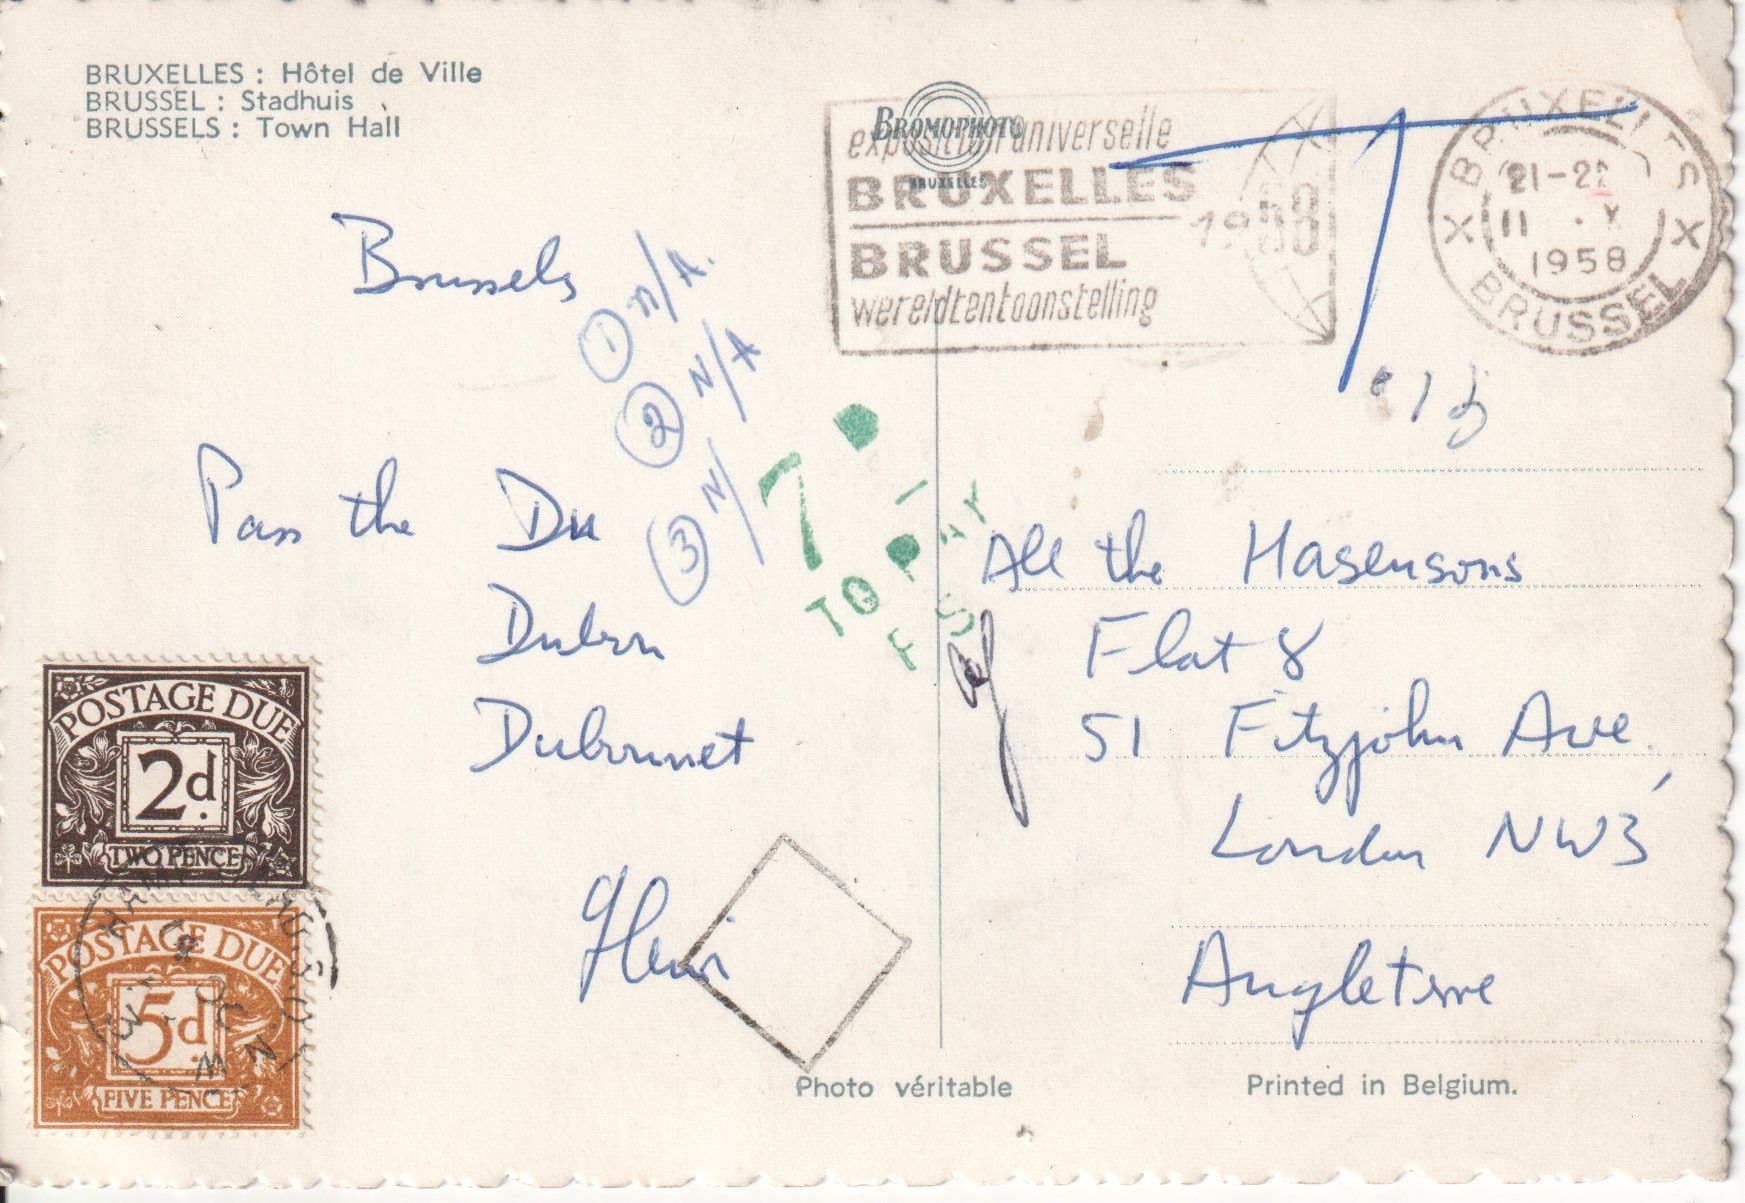 BRUXELLES : Hôtel de Ville
BRUSSEL : Stadhuis
BRUSSELS : Town Hall
BROMOPHOTO
BRUXELLES
exposition universelle
BRUXELLES
BRUSSEL
wereldtentoonstelling
1958
BRUXELLES
21-22
11 . X
1958
BRUSSEL
T
Brussels
① N/A.
② N/A
③ N/
Pass the Du
Dubon
Dubonnet
Henri
7
TO PAY
All the Hasensons
Flat 8
51 Fitzjohn Ave.
London NW3
Angleterre
POSTAGE DUE
2d.
TWO PENCE
POSTAGE DUE
5d.
FIVE PENCE
Photo véritable
Printed in Belgium.